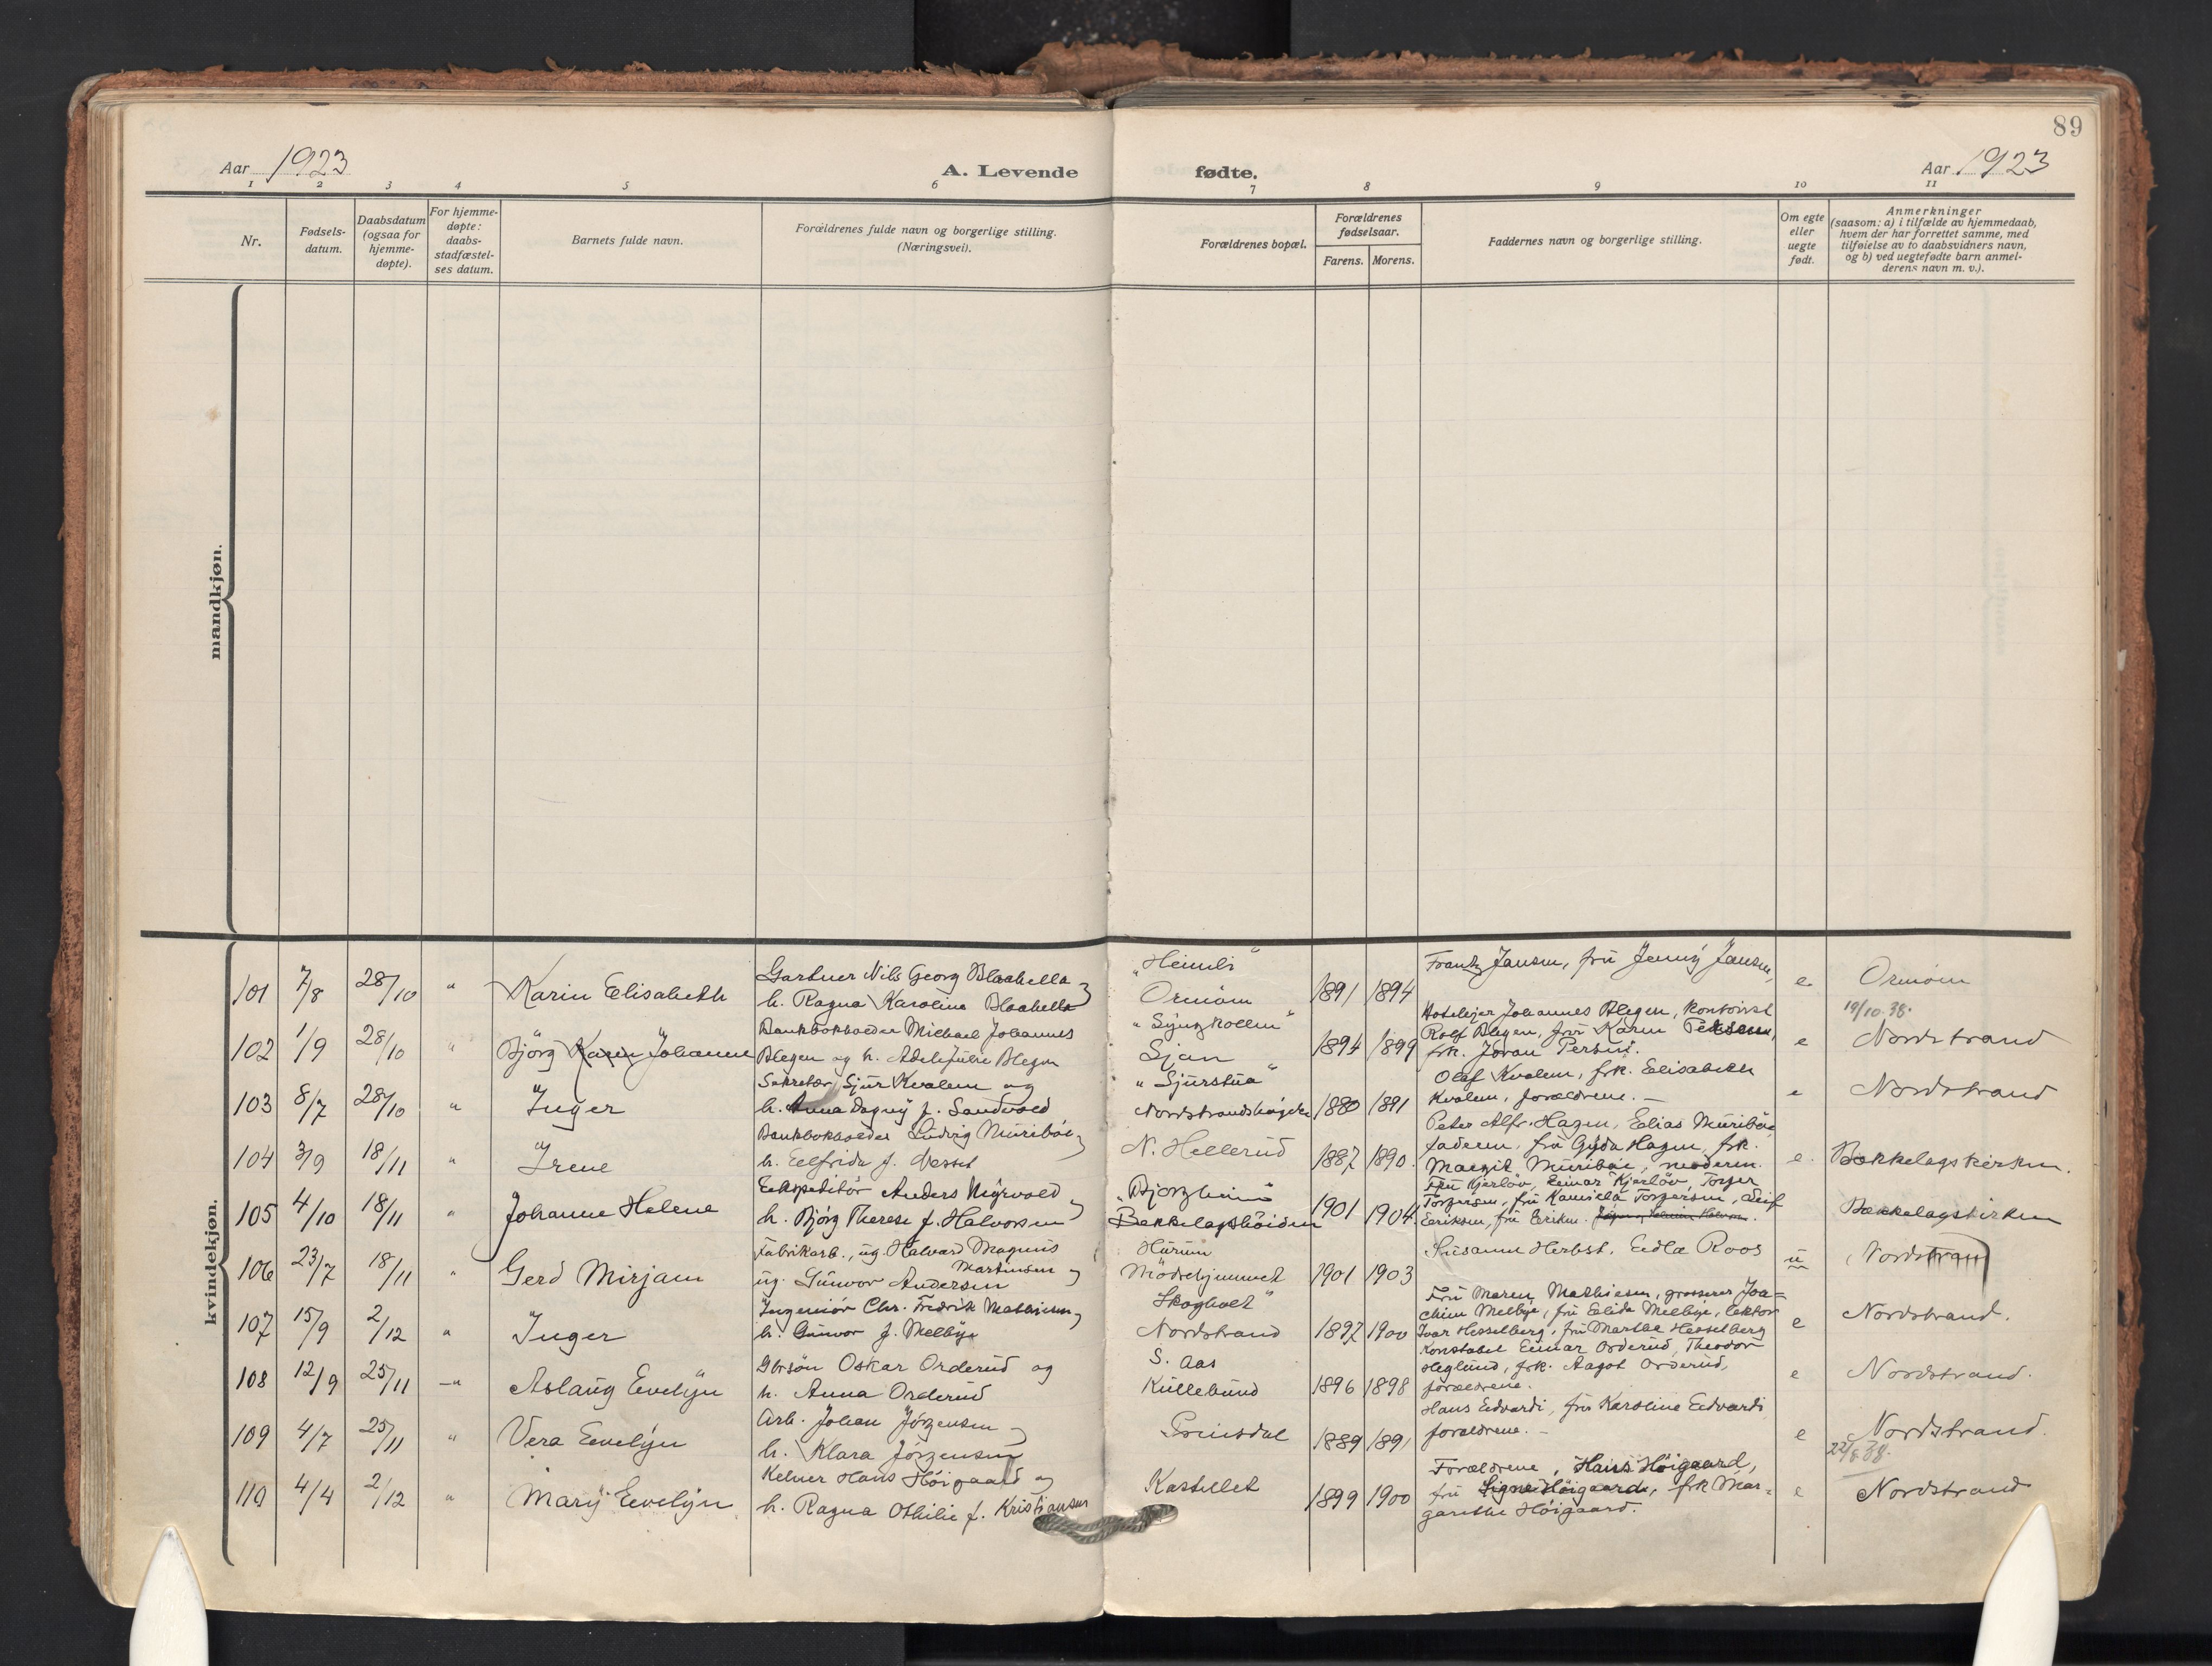 89
Aar 1923
A. Levende fødte.
Aar 1923
1 2 3 4 5 6 7 8 9 10 11
Nr.
Fødsels-
datum.
Daabsdatum
(ogsaa for
hjemme-
døpte).
For hjemme-
døpte:
daabs-
stadfæstel-
ses datum.
Barnets fulde navn.
Forældrenes fulde navn og borgerlige stilling.
(Næringsvei).
Forældrenes bopæl.
Forældrenes
fødselsaar.
Farens. Morens.
Faddernes navn og borgerlige stilling.
Om egte
eller
uegte
født.
Anmerkninger
(saasom: a) i tilfælde av hjemmedaab,
hvem der har forrettet samme, med
tilføielse av to daabsvidners navn,
og b) ved uegtefødte barn anmel-
derens navn m. v.).
mandkjøn.
kvindekjøn.
101 7/8 28/10 " Karin Elisabeth
Gartner Nils Georg Blaabella
h. Ragna Karoline Blaabella
"Heimli"
Ormøen
1891 1894
Frantz Jansen, fru Jenny Jansen,
e Ormøen
102 1/9 28/10 " Bjørg Karin Johanne
Bankbokholder Michael Johannes
Blegen og h. Adele Julie Blegen
Ljan
1894 1899
Hotelejer Johannes Blegen, kontorist
Rolf Blegen, fru Karen
frk.
e 19/10.38.
Nordstrand
103 8/7 28/10 " Inger
Sekretær Sjur Kvalem og
h. Anna Dagny f. Sandvold
"Sjurstua"
Nordstrandshøgda
1880 1891
Olaf Kvalem, frk. Elisabeth
Kvalem, forældrene. —
e Nordstrand
104 3/9 18/11 " Irene
Bankbokholder Ludvig Muribøe
h. Elfrida f. Nesset
N. Hellerud
1887 1890
Peter Alfr. Hagen, Elias Muribøe,
faderen, fru Gyda Hagen, frk.
Margit Muribøe, moderen.
e. Bækkelagskirken.
105 4/10 18/11 " Johanne Helene
Ekspeditør Anders Myrvold
h. Bjørg Therese f. Halvorsen
"Bjorgheim"
Bækkelagshøiden
1901 1904
Fru Kjerløv, Einar Kjerløv, Torger
Torgersen, fru Kamilla Torgersen, Leif
Eriksen, fru Eriksen.
Bækkelagskirken
106 23/7 18/11 " Gerd Mirjam
Fabrikarb., ug. Halvard Magnus
Martinsen
ug. Gunvor Andersen
Hurum
Mødrehjemmet
1901 1903
Susanne Herbst. Edla Roos
u Nordstrand
107 15/9 2/12 " Inger
Ingeniør Chr. Fredrik Mathiesen
h. Gunvor f. Melbye
Skogholt"
Nordstrand
1897 1900
Fru Maren Mathiesen, grosserer Joa=
chim Melbye, fru Elida Melbye, lektor
Ivar Hesselberg, fru Marthe Hesselberg
e Nordstrand.
108 12/9 25/11 —" Aslaug Evelyn
Gbrsøn Oskar Orderud og
h. Anna Orderud
S. Aas
Kullebund
1896 1898
Konstabel Einar Orderud, Theodor
Heglund, frk. Aagot Orderud,
forældrene.
e Nordstrand.
109 4/7 25/11 " Vera Evelyn
Arb. Johan Jørgensen
h. Klara Jørgensen
Prinsdal
1889 1891
Hans Edvardi, fru Karoline Edvardi
forældrene. —
e Nordstrand.
110 4/4 2/12 " Mary Evelyn
Kelner Hans Høigaard og
h. Ragna Othilie f. Kristiansen
Kastellet
1899 1900
Forældrene, Hans Høigaard,
fru Signe Høigaard, frk Mar=
garethe Høigaard.
e Nordstrand